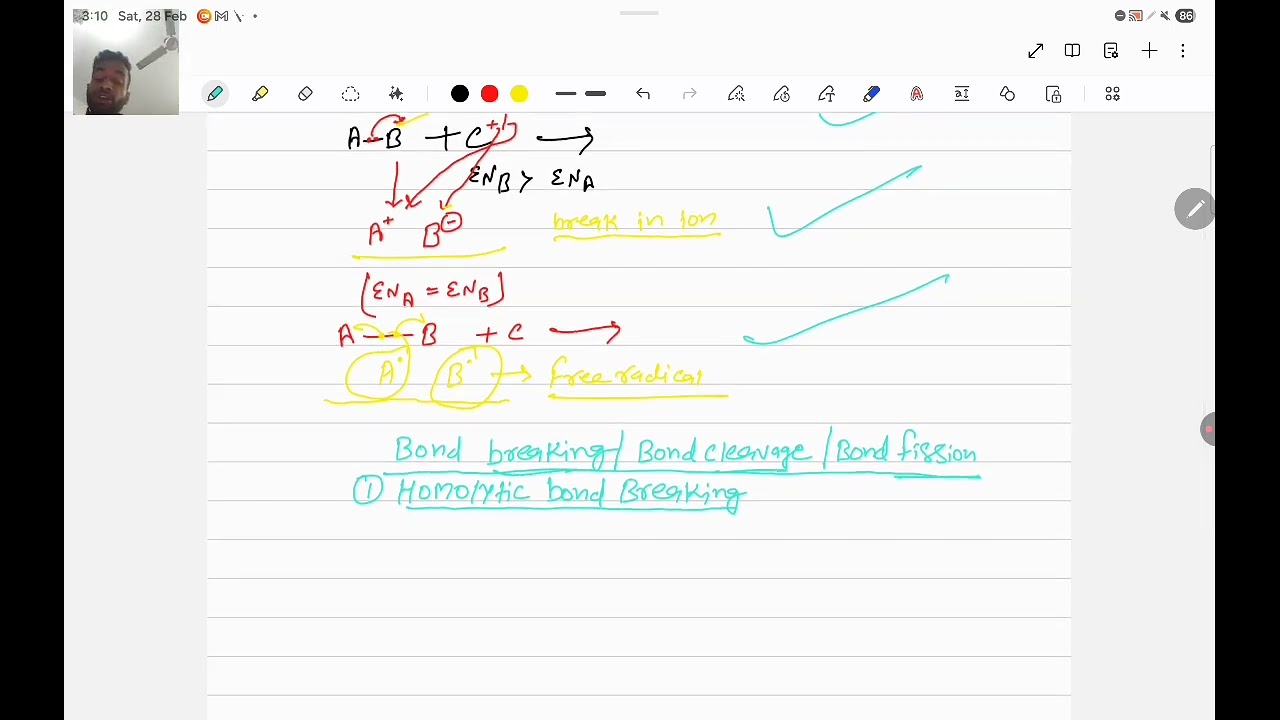 3:10 Sat, 28 Feb
86
A—B + C →
ƐN_B > ƐN_A
A⁺ B⊖ break in Ion
(ƐN_A = ƐN_B)
A—B + C →
A· B· → free radical
Bond breaking / Bond cleavage / Bond fission
① Homolytic bond Breaking